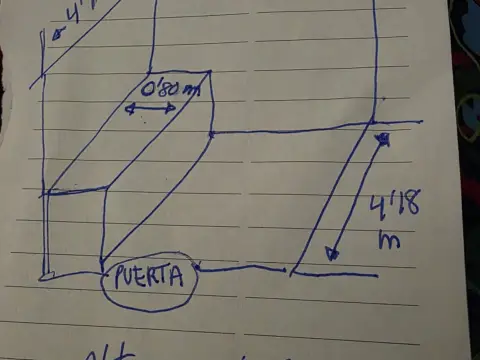 0'80 m
4'18
m
PUERTA